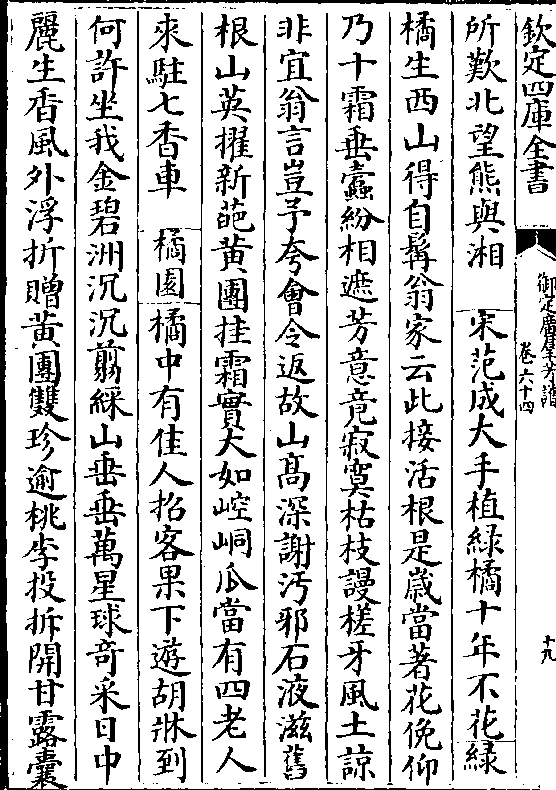 欽定四庫全書
御定廣羣芳譜
卷六十四
十九
所歎北望熊與湘 宋范成大手植綠橘十年不花綠
橘生西山得自髯翁家云此接活根是歲當著花俛仰
乃十霜垂蠹紛相遮芳意竟寂寞枯枝謾槎牙風土諒
非宜翁言豈予夸會令返故山高深謝汚邪石液滋舊
根山英擢新葩黄團挂霜實大如崆峒瓜當有四老人
來駐七香車 橘園 橘中有佳人招客果下遊胡牀到
何許坐我金碧洲沉沉翦綵山垂垂萬星球奇采日中
麗生香風外浮折贈黄團雙珍逾桃李投拆開甘露囊